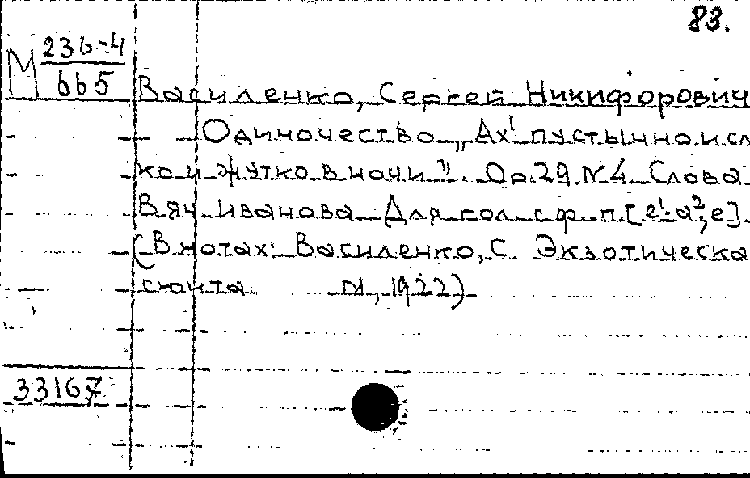 83.
М 236-4
665
Василенко, Сергей Никифорович
Одиночество „Ах! пустынно и сл
ко и жутко в ночи". Op. 29. N4. Слова
Вяч. Иванова. Для гол. с ф.-п. [e¹-a²; e].
(В нотах: Василенко, С. Экзотическа
сюита М., 1922)
33167